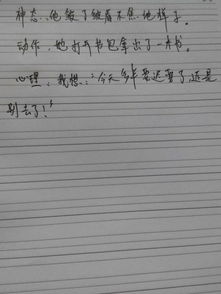 神态：他皱了皱眉不焦地样子。
动作，她打开书包拿出了一本书。
心理，我想：“今天多半要迟到了，还是
别去了！”